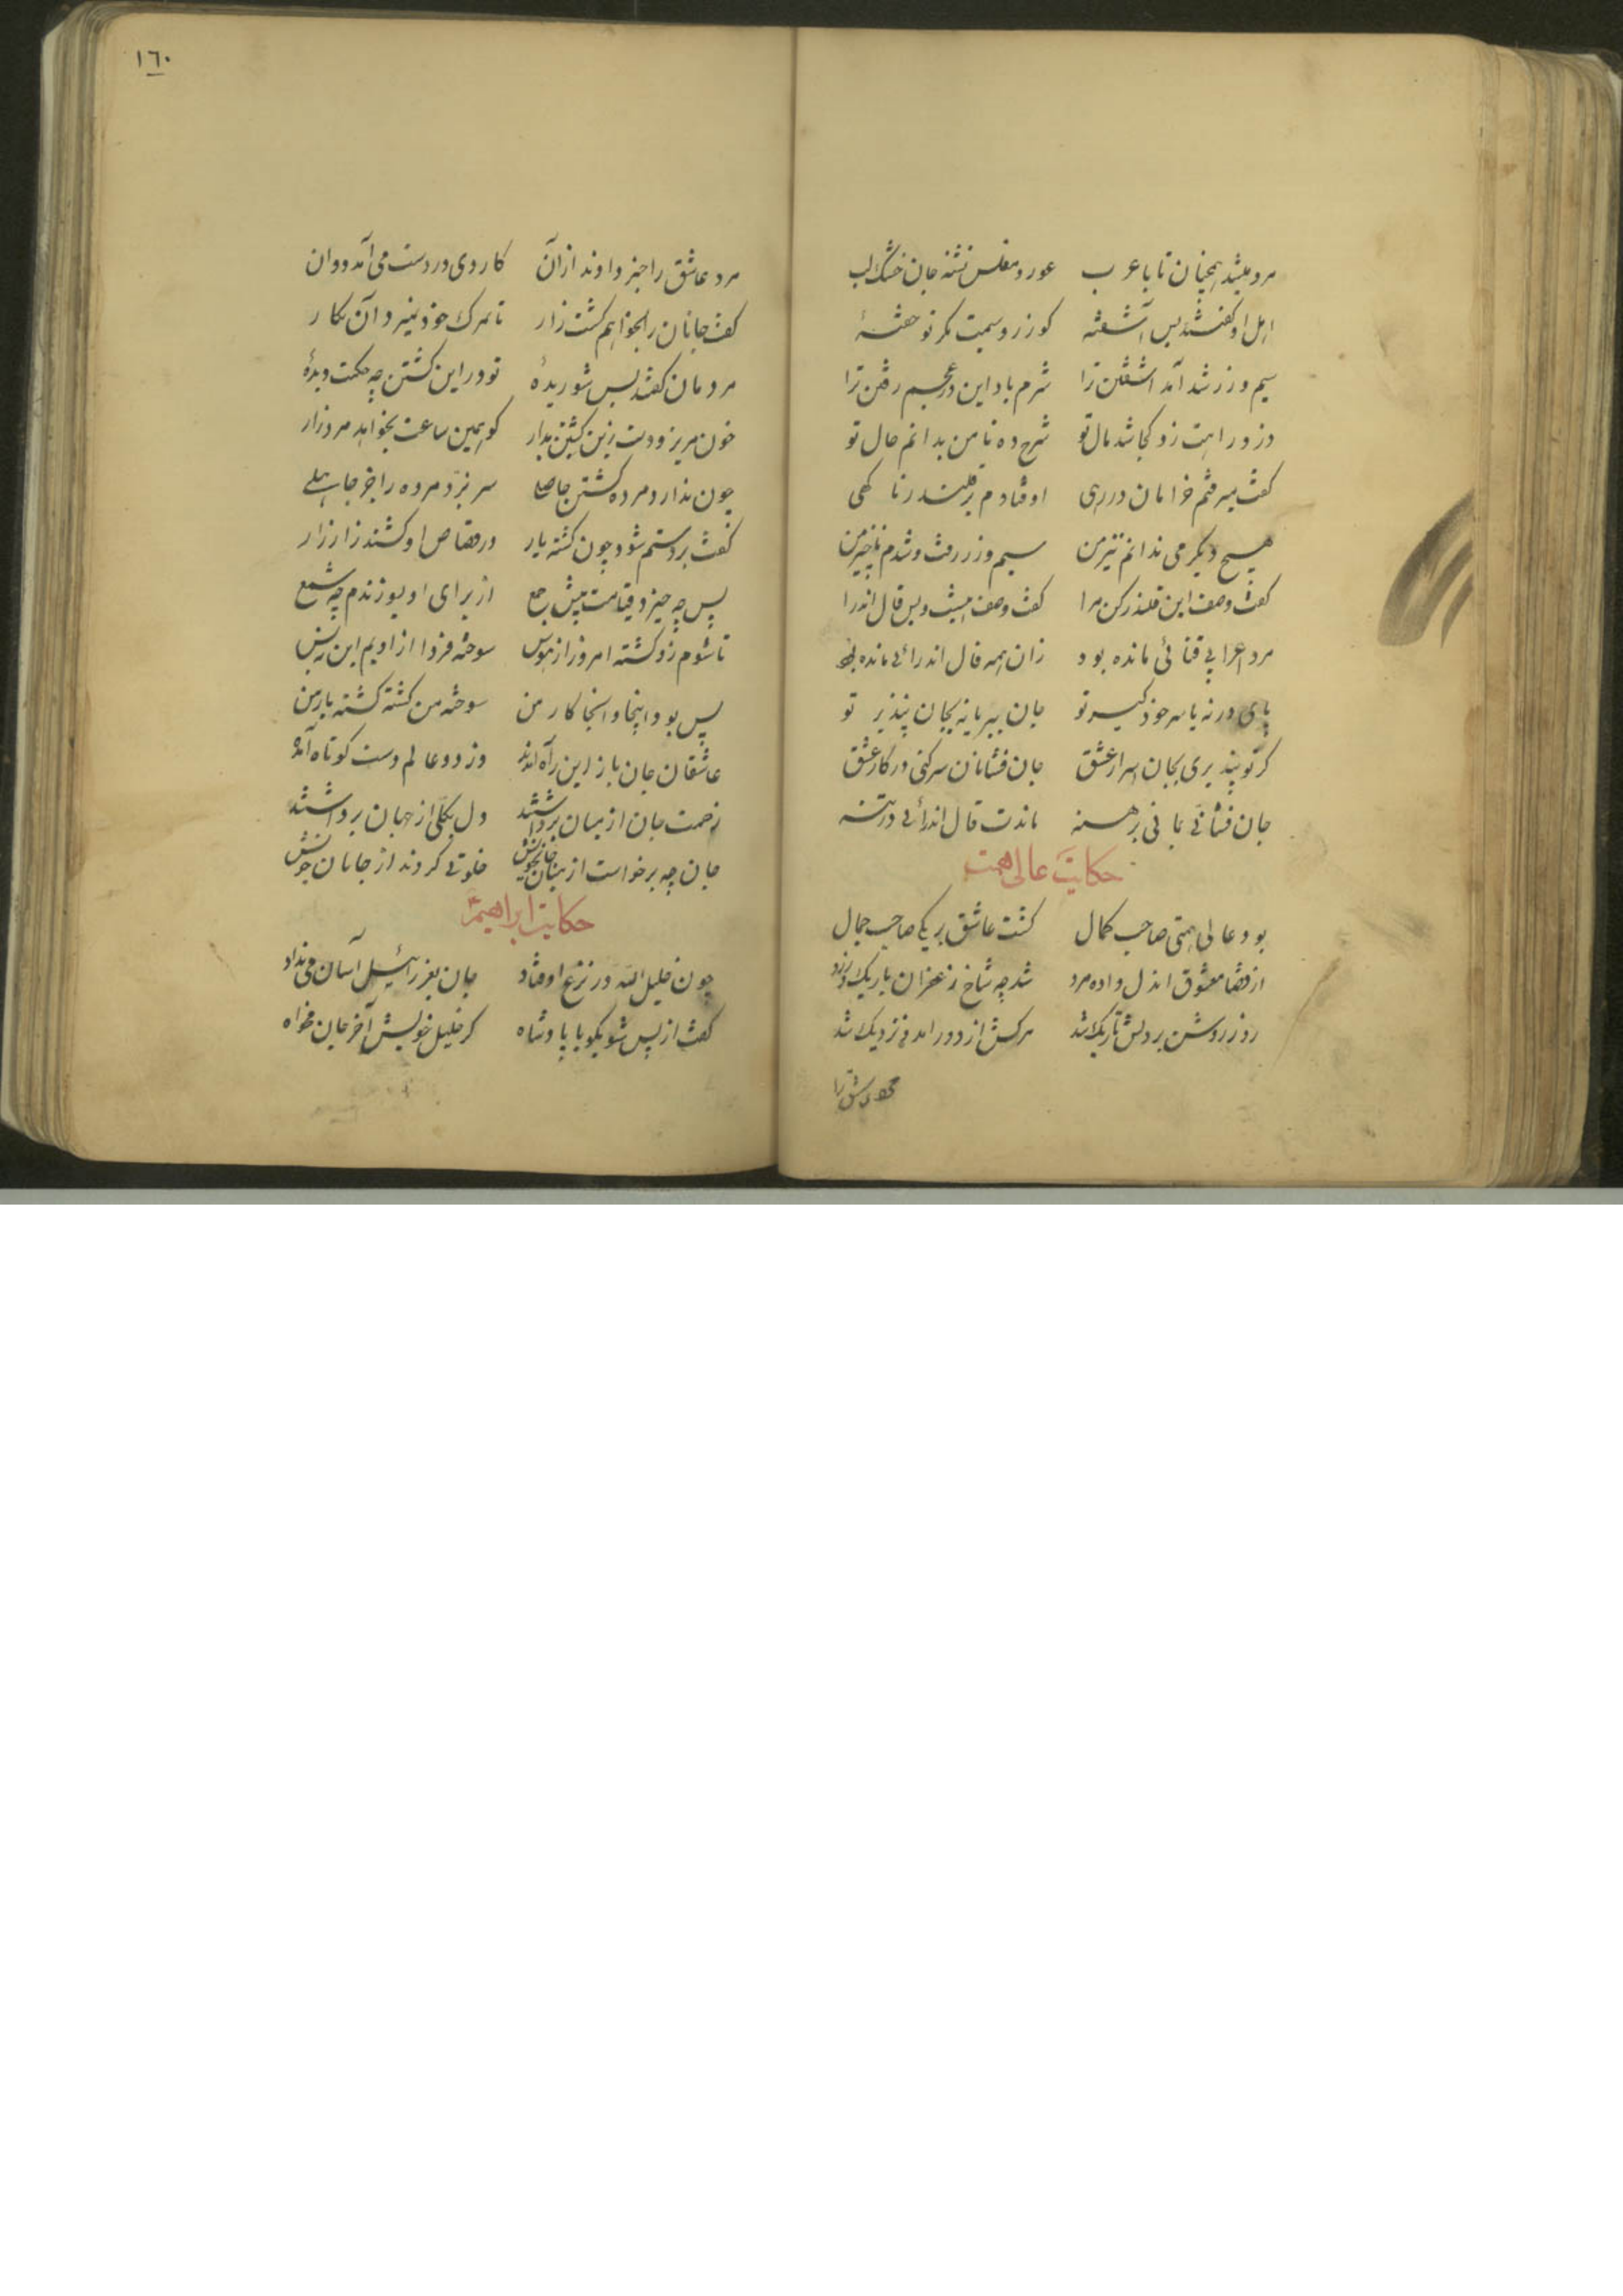 مرد میشد همچنان تا با عرب عور و مفلس تشنه جان خشک لب
اهل او کفتند بس آشفتهٔ کو زر و سیمت مکر تو خفتهٔ
سیم و زر شد آمد آشفتن ترا شرم باد این در عجم رفتن ترا
دزد راهت زد کجا شد مال تو شرح ده تا من بدانم حال تو
کفت میرفتم خرامان در رهی اوفتادم بر قلندر ناکهی
هیچ دیکر می ندانم نیز من سیم و زر رفت و شدم ناچیز من
کفت وصف این قلندر کن مرا کفت وصف اینست و بس قال اندرا
مرد اعرابی فنائی مانده بود زان همه قال اندرائی مانده بود
پای در نه یا سر خود کیر تو جان ببر یا نه بجان پپذیر تو
کر تو بپذیری بجان اسرار عشق جان فشانان سر کنی در کار عشق
جان فشانی بمانی برهنه ماندت قال اندرائی در بنه
حکایت عالی همت
بود عالی همتی صاحب کمال کشت عاشق بر یکی صاحب جمال
از قضا معشوق آن دل داده مرد شد چه شاخ زعفران باریک و زرد
روز روشن بر دلش تاریک شد مرکش از دور آمد و نزدیک شد
١٦٠
مرد عاشق را خبر دادند از آن کاردی در دست می آمد دوان
کفت جانان را بخواهم کشت زار تا بمرک خود نمیرد آن نکار
مردمان کفتند بس شوریدهٔ تو در این کشتن چه حکمت دیدهٔ
خون مریز و دست زین کشتن بدار کو همین ساعت بخواهد مرد زار
چون ندارد مرده کشتن حاصلی سر نبرد مرده را جز جاهلی
کفت بر دستم شود چون کشته یار در قصاص او کشندم زار زار
پس چه خیزد قیامت پیش جمع از برای او بسوزندم چه شمع
تا شوم زو کشته امروز از هوس سوخته فردا از اویم این نه بس
پس بود اینجا و آنجا کار من سوخته من کشته کشته یار من
عاشقان جان باز این راه آمدند وز دو عالم دست کوتاه آمده
زحمت جان از میان برداشتند دل بکلی از جهان برداشتند
جان چه برخاست از میان خلوتی کردند از جانان خویش
حکایت ابراهیم
چون خلیل الله در نزع اوفتاد جان بعزرائیل آسان می نداد
کفت از پس شو بکو با پادشاه کز خلیل خویش آخر جان مخواه